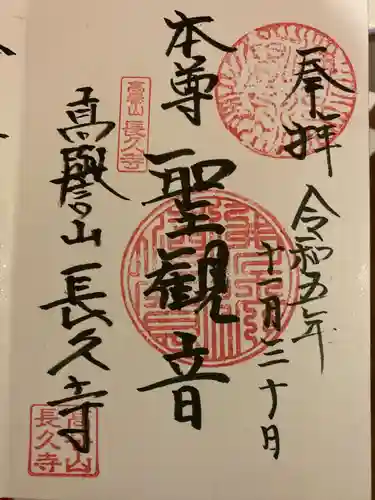 奉拝
令和五年
十一月三十日
本尊
聖觀音
高譽山
長久寺
高譽山長久寺
長久寺